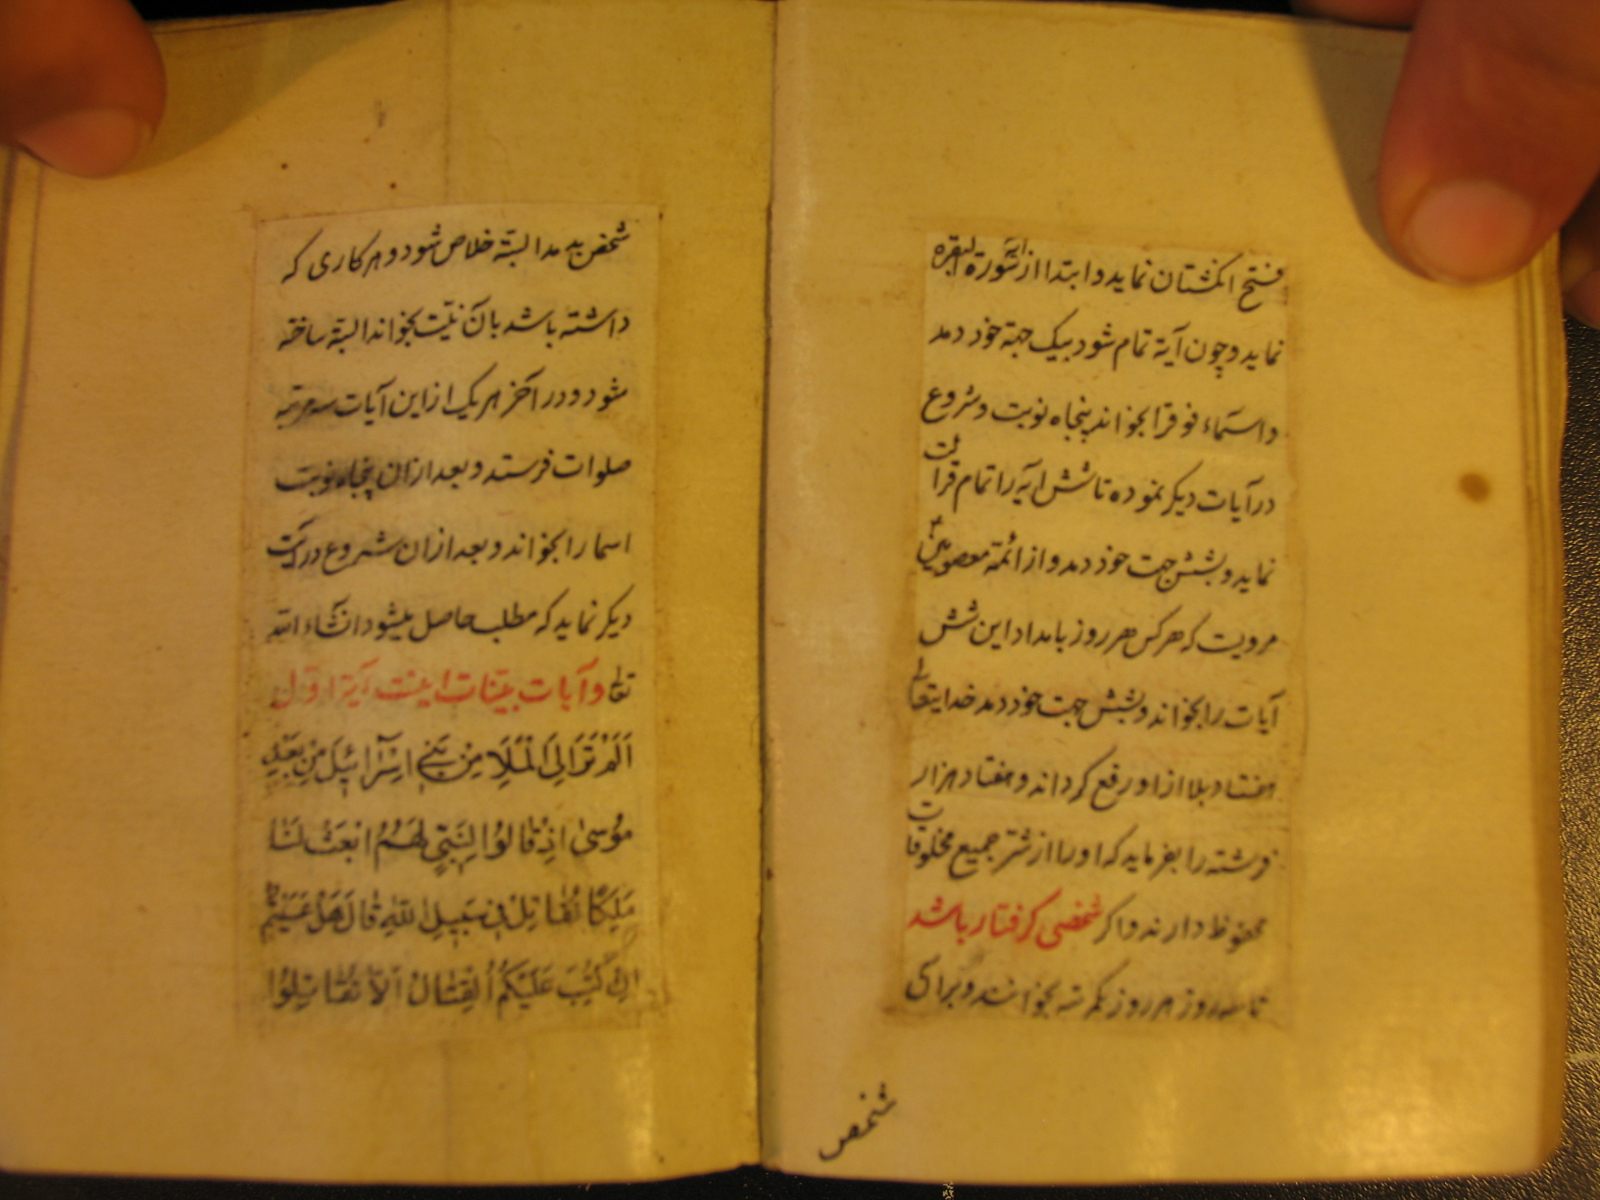 فتح انکشتان نماید و ابتدا از سورة البقره
نماید و چون آیة تمام شود بیک جهة خود دمد
و اسماء فوق را بخواند پنجاه نوبت و شروع
در آیات دیکر نموده تا شش آیه را تمام قرائت
نماید و بشش جهت خود دمد و از ائمة معصومین
مرویت که هر کس هر روز بامداد این شش
آیات را بخواند و بشش جهت خود دمد خدایتعالی
هفتاد بلا از او رفع کرداند و هفتاد هزار
فرشته را بفرماید که او را از شر جمیع مخلوقات
محفوظ دارند و اکر شخصی کرفتار باشد
تا سه روز هر روز یکمرتبه بخوانند و برای
شخص
شخص بدمد البتة خلاص شود و هر کاری که
داشته باشد بآن نیّت بخواند البتة ساخته
شود و در آخر هر یک از این آیات سه مرتبه
صلوات فرستد و بعد از ان پنجاه نوبت
اسما را بخواند و بعد از ان شروع در آیت
دیکر نماید که مطلب حاصل میشود انشاء الله
تعالی و آیات بینات اینست آیة اول
اَلَمْ تَرَ اِلَی الْمَلَاِ مِنْ بَنِی اِسْرَآئِیلَ مِنْ بَعْدِ
مُوسیٰ اِذْ قَالُوا لِنَبِیٍّ لَهُمُ ابْعَثْ لَنَا
مَلِکًا نُقَاتِلْ فِی سَبِیلِ اللّٰهِ قَالَ هَلْ عَسَیْتُمْ
اِنْ کُتِبَ عَلَیْکُمُ الْقِتَالُ اَلَّا تُقَاتِلُوا